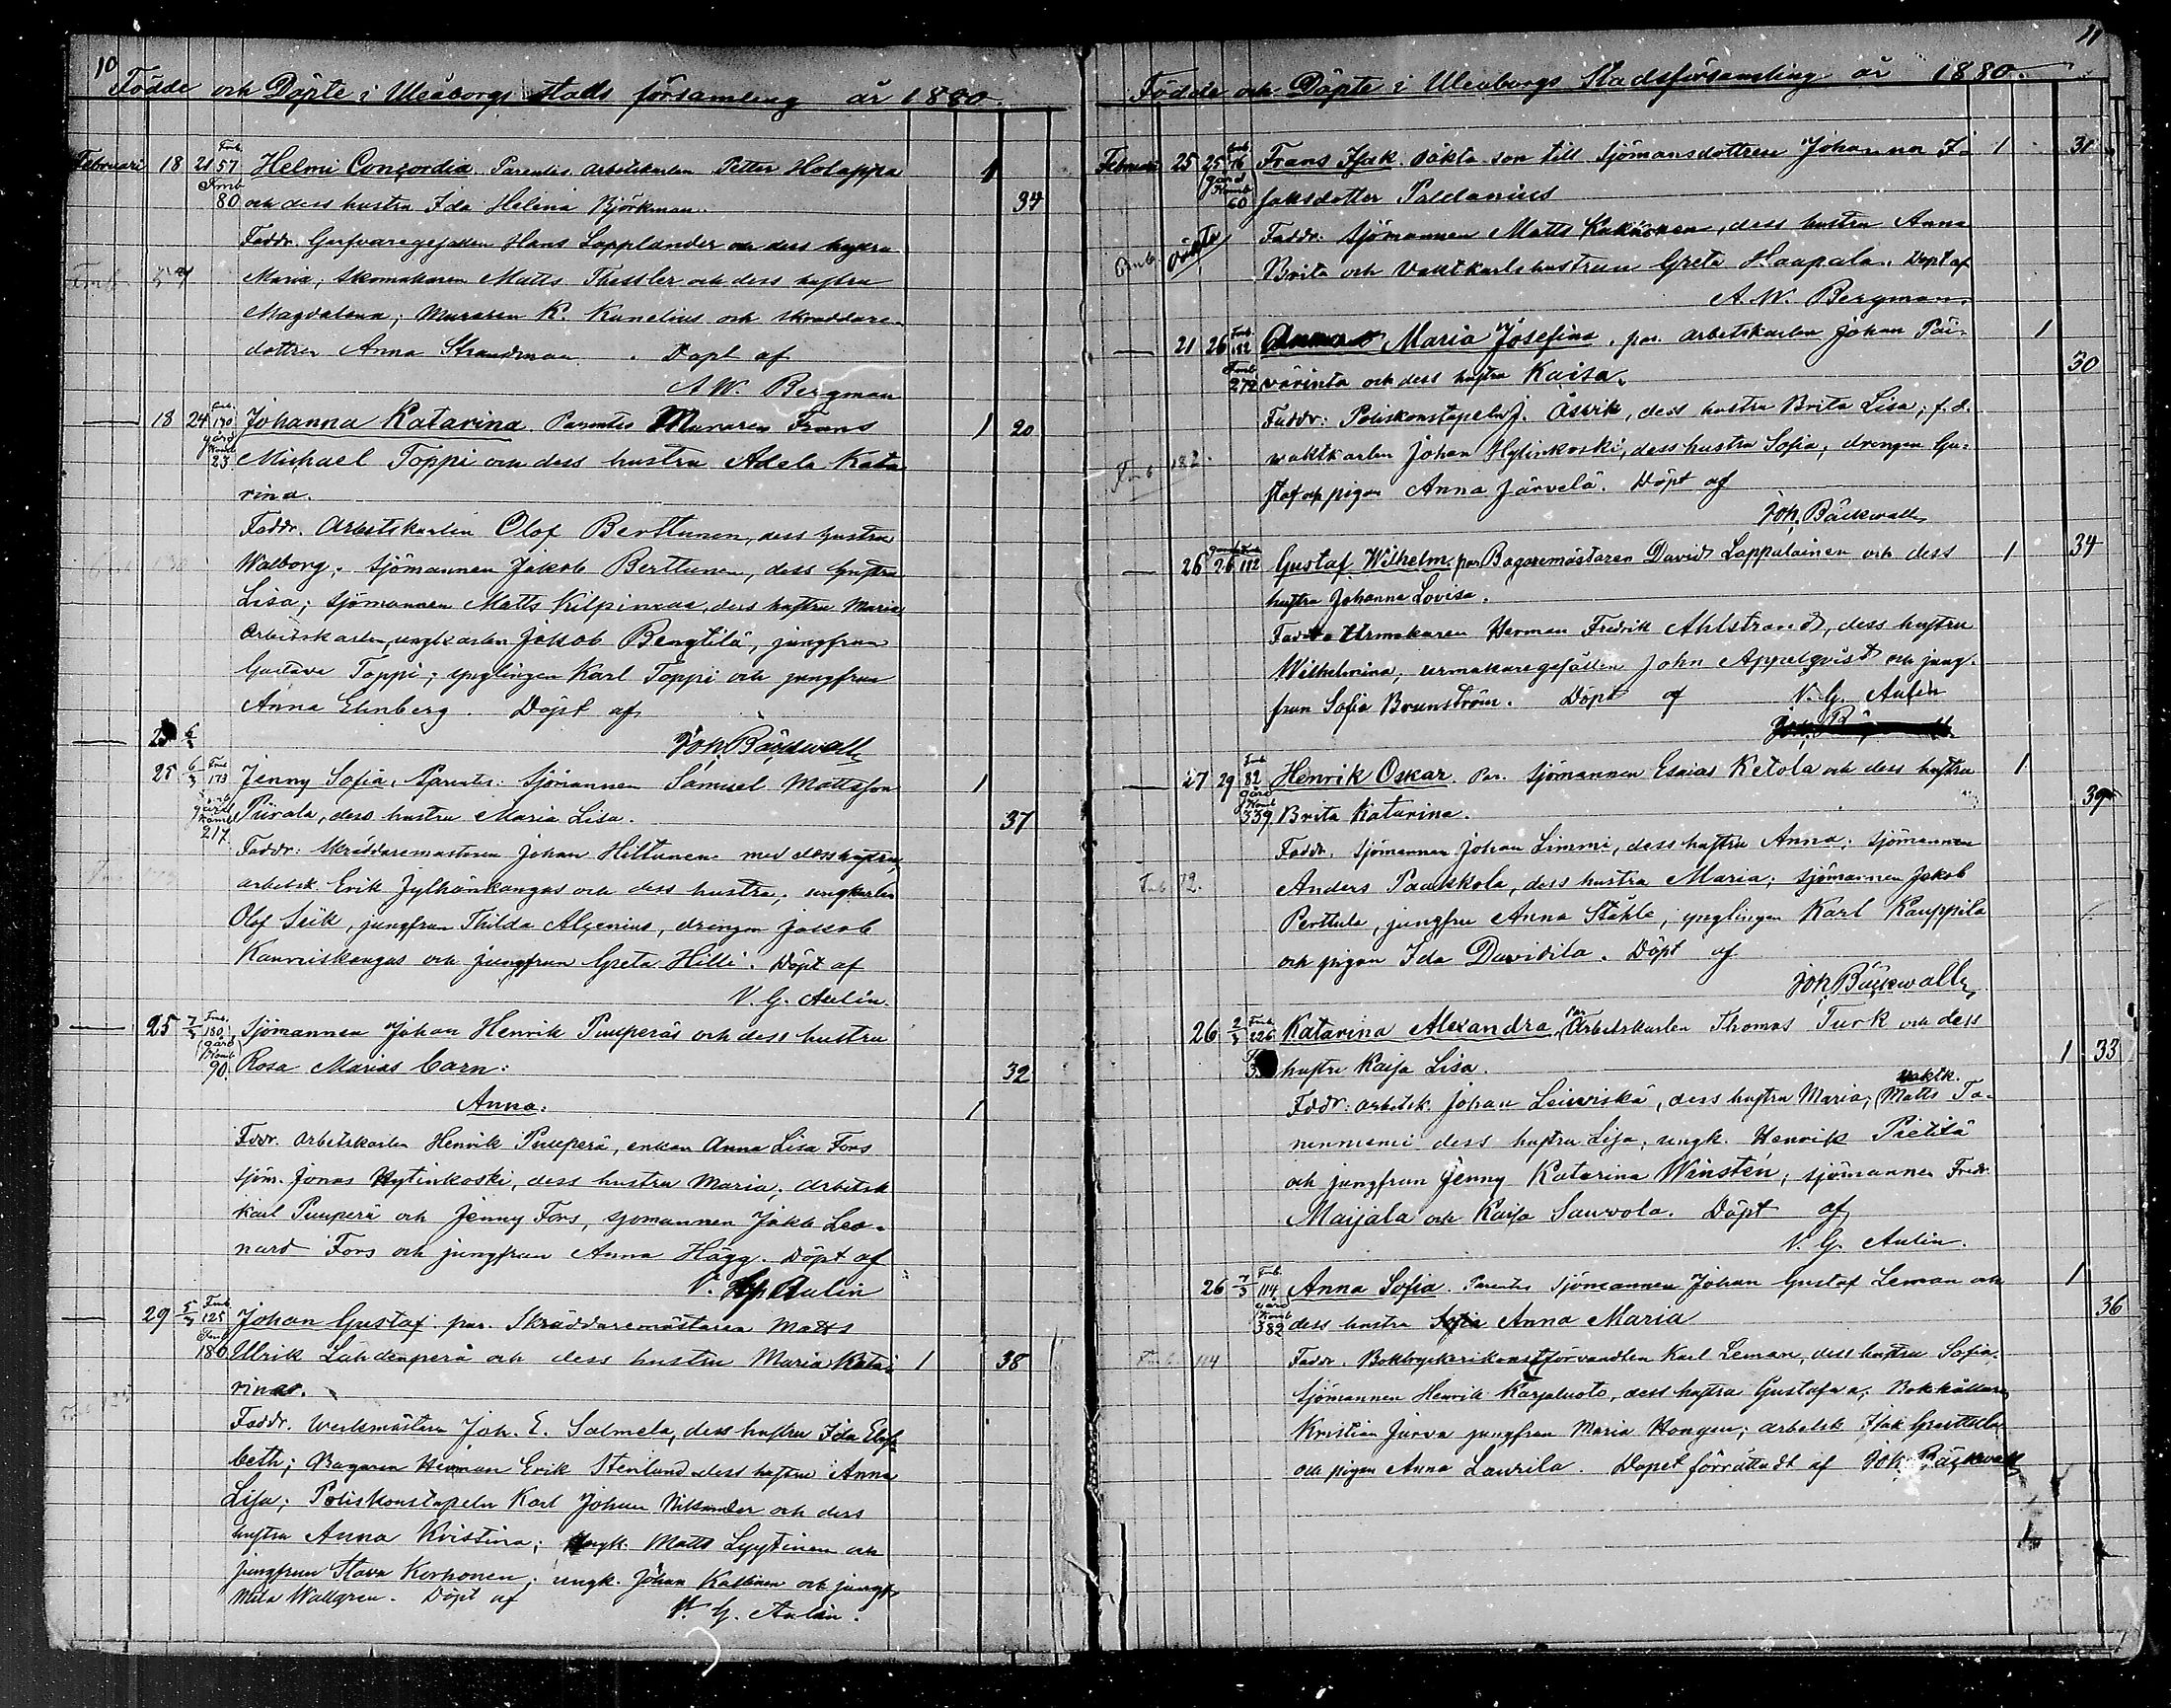 10
Födde och Döpte i Uleåborgs stads församling år 1880.
Februari 18 21 57 Helmi Concordia. Parentes arbetskarlen Petter Holappa 1
80 och dess hustru Ida Helena Björkman. 34
Faddr. Garfvaregesällen Hans Lapplander och dess hustru
Maria, skomakaren Matts Thessler och dess hustru
Magdalena, muraren K. Kunelius och skräddare
dottren Anna Strandman. Döpt af
A W. Bergman
18 24 170 Johanna Katarina Parentes Muraren Frans 1 20
gård Komb 23 Michael Toppi och dess hustru Adela Kata
rina.
Faddr. Arbetskarlen Olof Berttunen, dess hustru
Walborg; sjömannen Jakob Berttunen, dess hustru
Lisa; sjömannen Matts Kilpinen, dess hustru Maria
Arbetskarlen, ungkarlen Jakob Bengtilä, jungfrun
Gustava Toppi; ynglingen Karl Toppi och jungfrun
Anna Elenberg. Döpt af
Joh. Bäckwall
25 6/3 173 Jenny Sofia. Parentes: Sjömannen Samuel Mattsson 1
gård Komb 217 Piirala, dess hustru Maria Lisa. 37
Faddr: Skräddaremästaren Johan Hiltunen med dess hustru,
arbetsk. Erik Jylhänkangas och dess hustru, ungkarlen
Olof Siik, jungfrun Thilda Alcenius, drängen Jakob
Kanniskangas och jungfrun Greta Hilli. Döpt af
V. G. Aulin.
25 7/3 180 Sjömannen Johan Henrik Puuperäs och dess hustru
gård Komb 90. Rosa Marias barn: 32
Anna. 1
Faddr. arbetskarlen Henrik Puuperä, enkan Anna Lisa Fors
sjöm. Jonas Hytinkoski, dess hustru Maria, arbetsk
Karl Puuperä och Jenny Fors, sjömannen Jakob Leo-
nard Fors och jungfrun Anna Hägg. Döpt af
V. G. Aulin
29 5/3 125 Johan Gustaf. par. Skräddaremästaren Matts
180 Ulrik Lahdenperä och dess hustru Maria Kata- 1 38
rina.
Faddr. Werkmästaren Joh. E. Salmela, dess hustru Ida Elisa
beth; Bagaren Herman Erik Stenlund dess hustru Anna
Lisa; Poliskonstapeln Karl Johan Niklander och dess
hustru Anna Kristina; ungk. Matts Lyytinen och
jungfrun Stava Korhonen; ungk. Johan Kallinen och jungf.
Mila Wallgren. Döpt af V. G. Aulin.
11
Födde och Döpte i Uleaborgs Stadsförsamling år 1880.
Februari 25 25 76 Frans Isak. oäkta son till Sjömansdottren Johanna I- 1 31
gård Komb 60 saksdotter Paldanius
oäkta Faddr. Sjömannen Matts Kakäinen, dess hustru Anna
Brita och Vaktkarlshustrun Greta Haapala. Döpt af
A. W. Bergman.
21 26 182 Maria Josefina. par. arbetskarlen Johan Päi- 1
272 värinta och dess hustru Kaisa. 30
Faddr: Poliskonstapeln J. Åsvik, dess hustru Brita Lisa; f.d.
vaktkarlen Johan Hytinkoski, dess hustru Sofia, drengen Gu-
staf och pigan Anna Järvelä. Döpt af
Fmb 182. Joh. Bäckwall
26 26 112 Gustaf Wilhelm. par Bagaremästaren David Lappalainen och dess 1 34
hustru Johanna Lovisa.
Faddr. Urmakaren Herman Fredrik Ahlstrand, dess hustru
Wilhelmina, urmakaregesällen John Appelqvist och jung-
frun Sofia Brunström. Döpt af V. G. Aulin
27 29 82 Henrik Oskar. Par. Sjömannen Esaias Ketola och dess hustru 1
gård Komb 339. Brita Katarina. 39
Faddr. Sjömannen Johan Limmi, dess hustru Anna; sjömannen
Anders Paakkola, dess hustru Maria; sjömannen Jakob
Perttula, jungfru Anna Ståhle, ynglingen Karl Kauppila
och pigan Ida Davidila. Döpt af
Joh. Bäckwall
26 2/3 226 Katarina Alexandra, Par Arbetskarlen Thomas Turk och dess
hustru Kaisa Lisa. 1 33
Faddr: arbetsk. Johan Leiviskä, dess hustru Maria; vaktk. Matts Ta-
ninniemi dess hustru Lisa; ungk. Henrik Pietilä
och jungfrun Jenny Katarina Winstén; sjömannen Fredr.
Maijala och Kaisa Sauvola. Döpt af
V. G. Aulin.
26 7/3 114 Anna Sofia. Parentes Sjömannen Johan Gustaf Leman och 1
gård Komb 382 dess hustru Anna Maria 36
Fmb 114 Faddr. Boktryckerikonstförvandten Karl Leman, dess hustru Sofia.
Sjömannen Henrik Karjaluoto, dess hustru Gustafva, Bokhållaren
Kristian Jurva jungfrun Maria Hongen; arbetsk Isak Granttila
och pigan Anna Laurila. Dopet förrättadt af Joh. Bäckwall